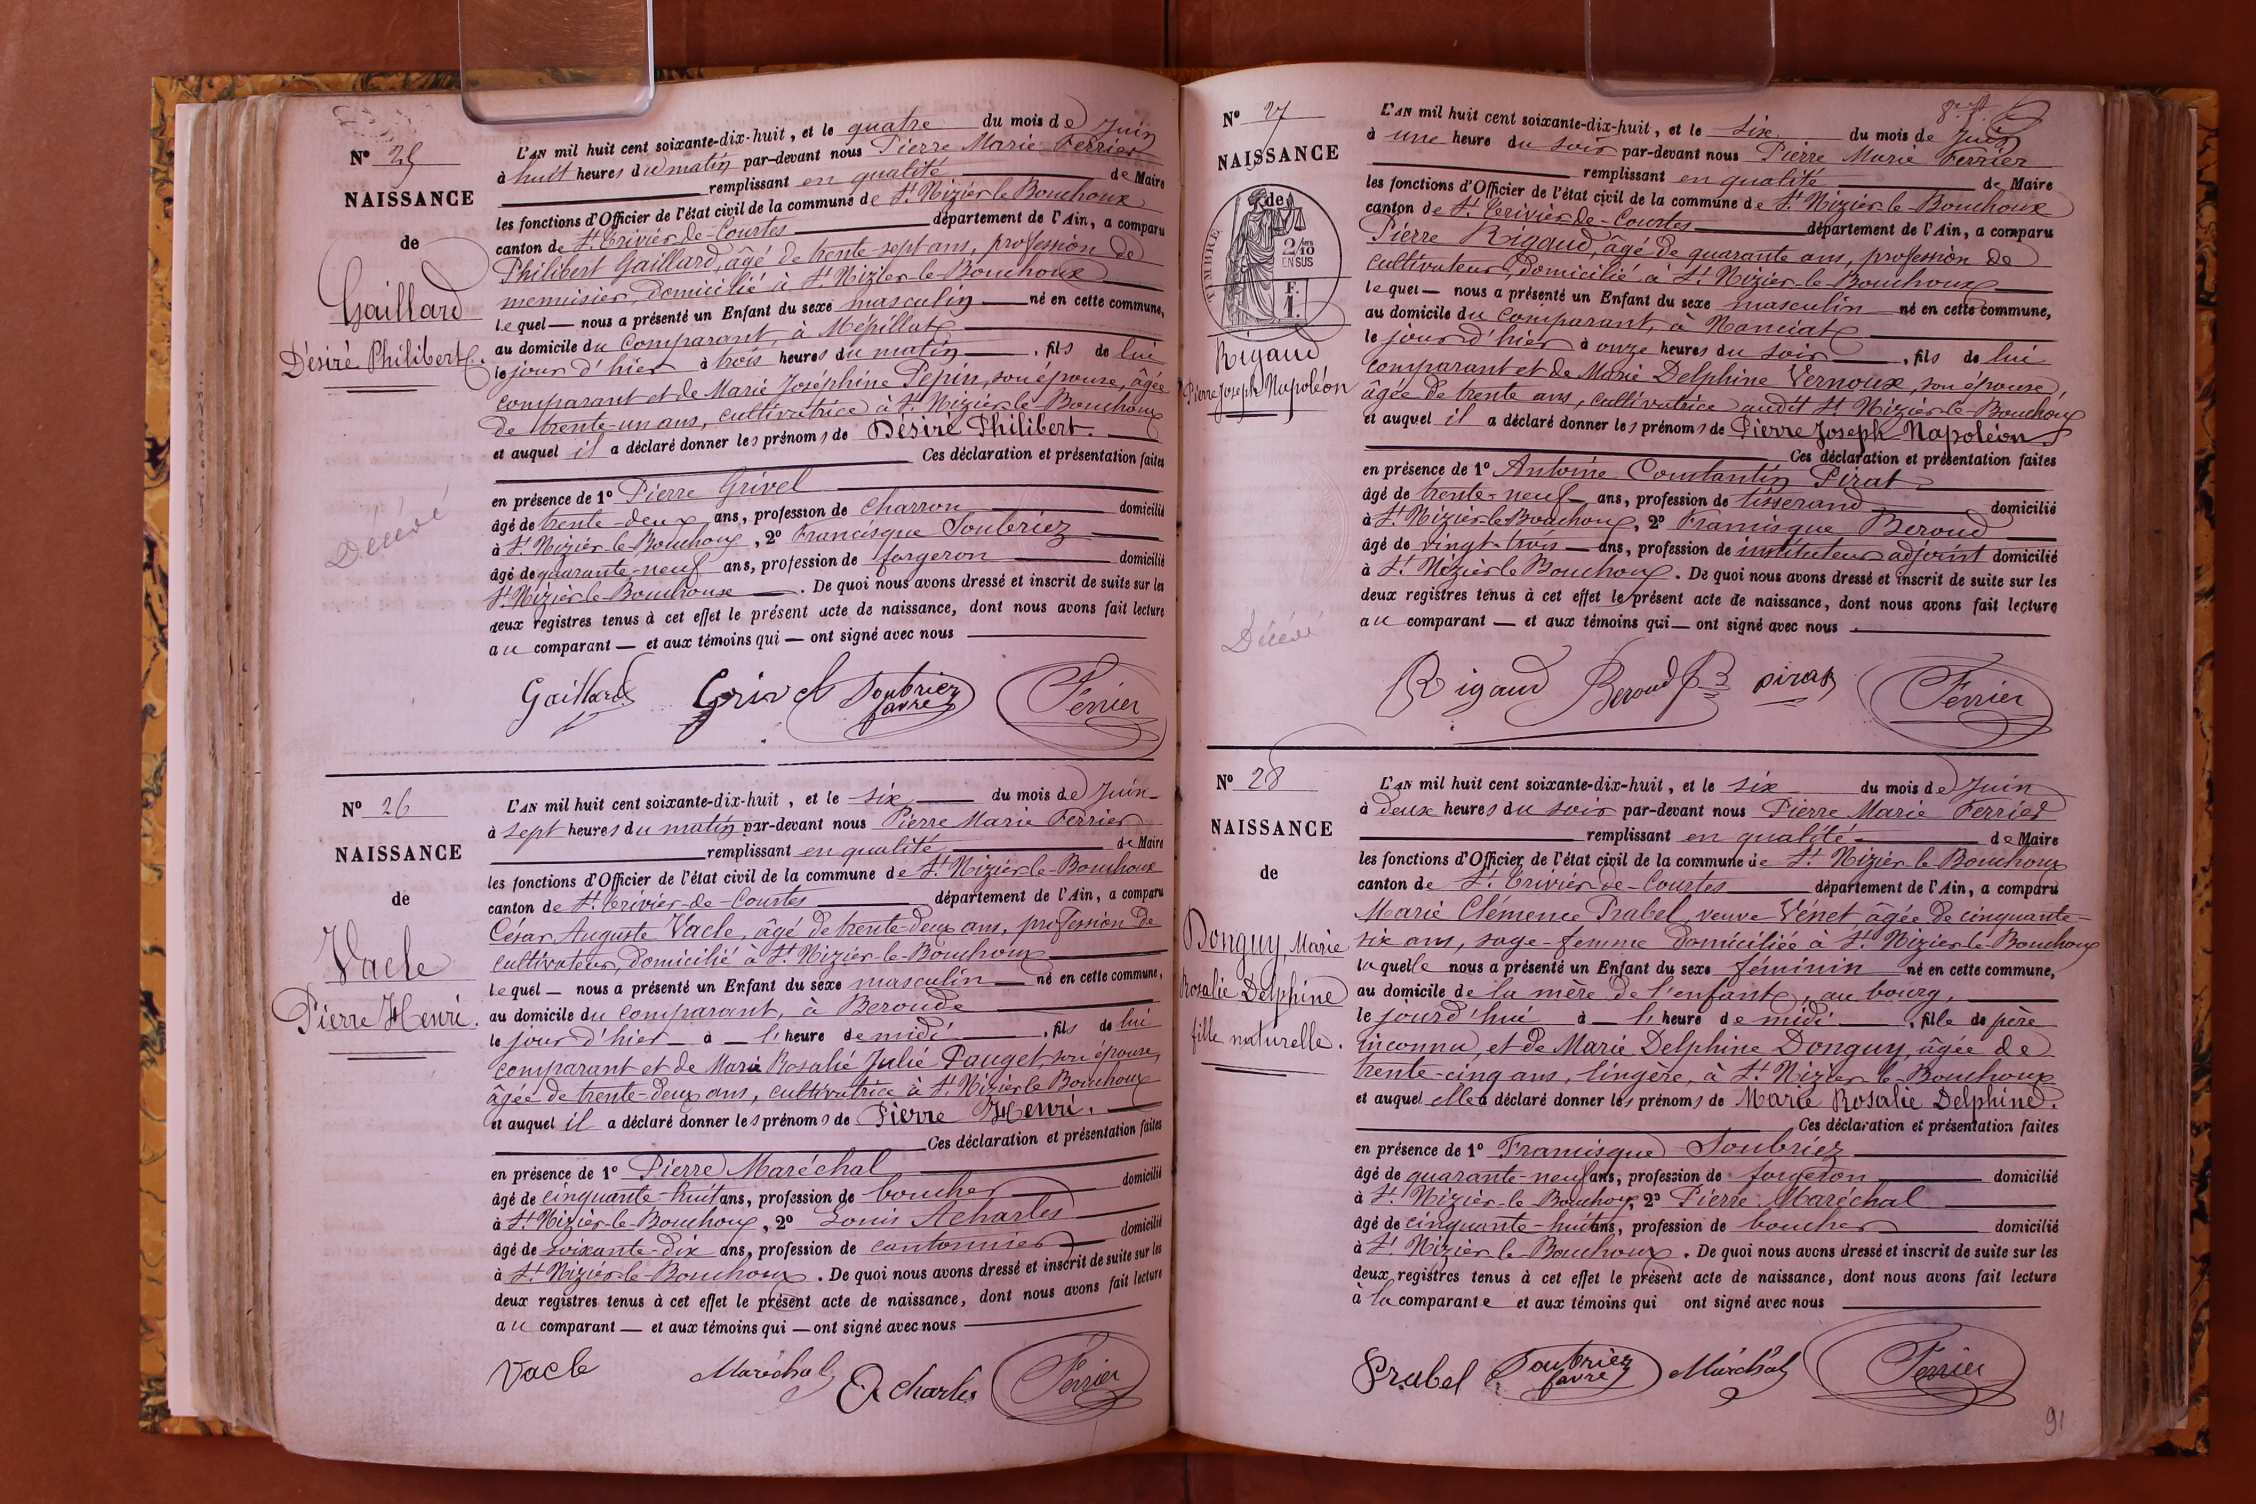 N° 25
NAISSANCE
de
Gaillard
Désiré Philibert.
Décédé
L'AN mil huit cent soixante-dix-huit, et le quatre du mois de Juin
à huit heures du matin par-devant nous Pierre Marie Ferrier
remplissant en qualité de Maire
les fonctions d'Officier de l'état civil de la commune de St Nizier le Bouchoux
canton de St Trivier-de-Courtes département de l'Ain, a comparu
Philibert Gaillard, âgé de trente-sept ans, profession de
menuisier, domicilié à St Nizier-le-Bouchoux
lequel nous a présenté un Enfant du sexe masculin né en cette commune,
au domicile du comparant, à Mépillat
le jour d'hier à trois heures du matin, fils de lui
comparant et de Marie Joséphine Pepin, son épouse, âgée
de trente-un ans, cultivatrice à St Nizier-le-Bouchoux
et auquel il a déclaré donner les prénoms de Désiré Philibert.
Ces déclaration et présentation faites
en présence de 1° Pierre Grivel
âgé de trente-deux ans, profession de charron domicilié
à St Nizier-le-Bouchoux, 2° Francisque Soubriez
âgé de quarante-neuf ans, profession de forgeron domicilié
St Nizier-le-Bouchoux. De quoi nous avons dressé et inscrit de suite sur les
deux registres tenus à cet effet le présent acte de naissance, dont nous avons fait lecture
au comparant et aux témoins qui ont signé avec nous
Gaillard Grivel Soubriez favre Ferrier
N° 26
NAISSANCE
de
Vacle
Pierre Henri.
L'AN mil huit cent soixante-dix-huit, et le six du mois de Juin
à sept heures du matin par-devant nous Pierre Marie Ferrier
remplissant en qualité de Maire
les fonctions d'Officier de l'état civil de la commune de St Nizier-le-Bouchoux
canton de St Trivier-de-Courtes département de l'Ain, a comparu
César Auguste Vacle, âgé de trente-deux ans, profession de
cultivateur, domicilié à St Nizier-le-Bouchoux
lequel nous a présenté un Enfant du sexe masculin né en cette commune,
au domicile du comparant, à Beroude
le jour d'hier à l'heure de midi, fils de lui
comparant et de Marie Rosalie Julie Pauget, son épouse,
âgée de trente-deux ans, cultivatrice à St Nizier le Bouchoux
et auquel il a déclaré donner les prénoms de Pierre Henri.
Ces déclaration et présentation faites
en présence de 1° Pierre Maréchal
âgé de cinquante-huit ans, profession de boucher domicilié
à St Nizier-le-Bouchoux, 2° Louis Acharles
âgé de soixante-dix ans, profession de cantonnier domicilié
à St Nizier-le-Bouchoux. De quoi nous avons dressé et inscrit de suite sur les
deux registres tenus à cet effet le présent acte de naissance, dont nous avons fait lecture
au comparant et aux témoins qui ont signé avec nous
Vacle Maréchal Acharles Ferrier
N° 27
NAISSANCE
de
TIMBRE
2/10
EN SUS
F.
1.
Rigaud
Pierre Joseph Napoléon
Décédé
L'AN mil huit cent soixante-dix-huit, et le six du mois de Juin
à une heure du soir par-devant nous Pierre Marie Ferrier
remplissant en qualité de Maire
les fonctions d'Officier de l'état civil de la commune de St Nizier-le-Bouchoux
canton de St Trivier-de-Courtes département de l'Ain, a comparu
Pierre Rigaud, âgé de quarante ans, profession de
cultivateur, domicilié à St Nizier-le-Bouchoux
lequel nous a présenté un Enfant du sexe masculin né en cette commune,
au domicile du comparant, à Nanciat
le jour d'hier à onze heures du soir, fils de lui
comparant et de Marie Delphine Vernoux, son épouse,
âgée de trente ans, cultivatrice audit St Nizier-le-Bouchoux
et auquel il a déclaré donner les prénoms de Pierre Joseph Napoléon
Ces déclaration et présentation faites
en présence de 1° Antoine Constantin Pirat
âgé de trente-neuf ans, profession de tisserand domicilié
à St Nizier-le-Bouchoux, 2° Francisque Beroud
âgé de vingt-trois ans, profession de instituteur adjoint domicilié
à St Nizier le Bouchoux. De quoi nous avons dressé et inscrit de suite sur les
deux registres tenus à cet effet le présent acte de naissance, dont nous avons fait lecture
au comparant et aux témoins qui ont signé avec nous
Rigaud Beroud pirat Ferrier
N° 28
NAISSANCE
de
Donguy, Marie
Rosalie Delphine
fille naturelle.
L'AN mil huit cent soixante-dix-huit, et le six du mois de Juin
à deux heures du soir par-devant nous Pierre Marie Ferrier
remplissant en qualité de Maire
les fonctions d'Officier de l'état civil de la commune de St Nizier-le-Bouchoux
canton de St Trivier-de-Courtes département de l'Ain, a comparu
Marie Clémence Prabel, veuve Vénet âgée de cinquante-
six ans, sage-femme domiciliée à St Nizier-le-Bouchoux
laquelle nous a présenté un Enfant du sexe féminin né en cette commune,
au domicile de la mère de l'enfant, au bourg,
le jourd'hui à l'heure de midi, fille de père
inconnu, et de Marie Delphine Donguy, âgée de
trente-cinq ans, lingère, à St Nizier-le-Bouchoux
et auquel elle a déclaré donner les prénoms de Marie Rosalie Delphine.
Ces déclaration et présentation faites
en présence de 1° Francisque Soubriez
âgé de quarante-neuf ans, profession de forgeron domicilié
à St Nizier-le-Bouchoux, 2° Pierre Maréchal
âgé de cinquante-huit ans, profession de boucher domicilié
à St Nizier-le-Bouchoux. De quoi nous avons dressé et inscrit de suite sur les
deux registres tenus à cet effet le présent acte de naissance, dont nous avons fait lecture
à la comparante et aux témoins qui ont signé avec nous
Prabel Soubriez favre Maréchal Ferrier
91